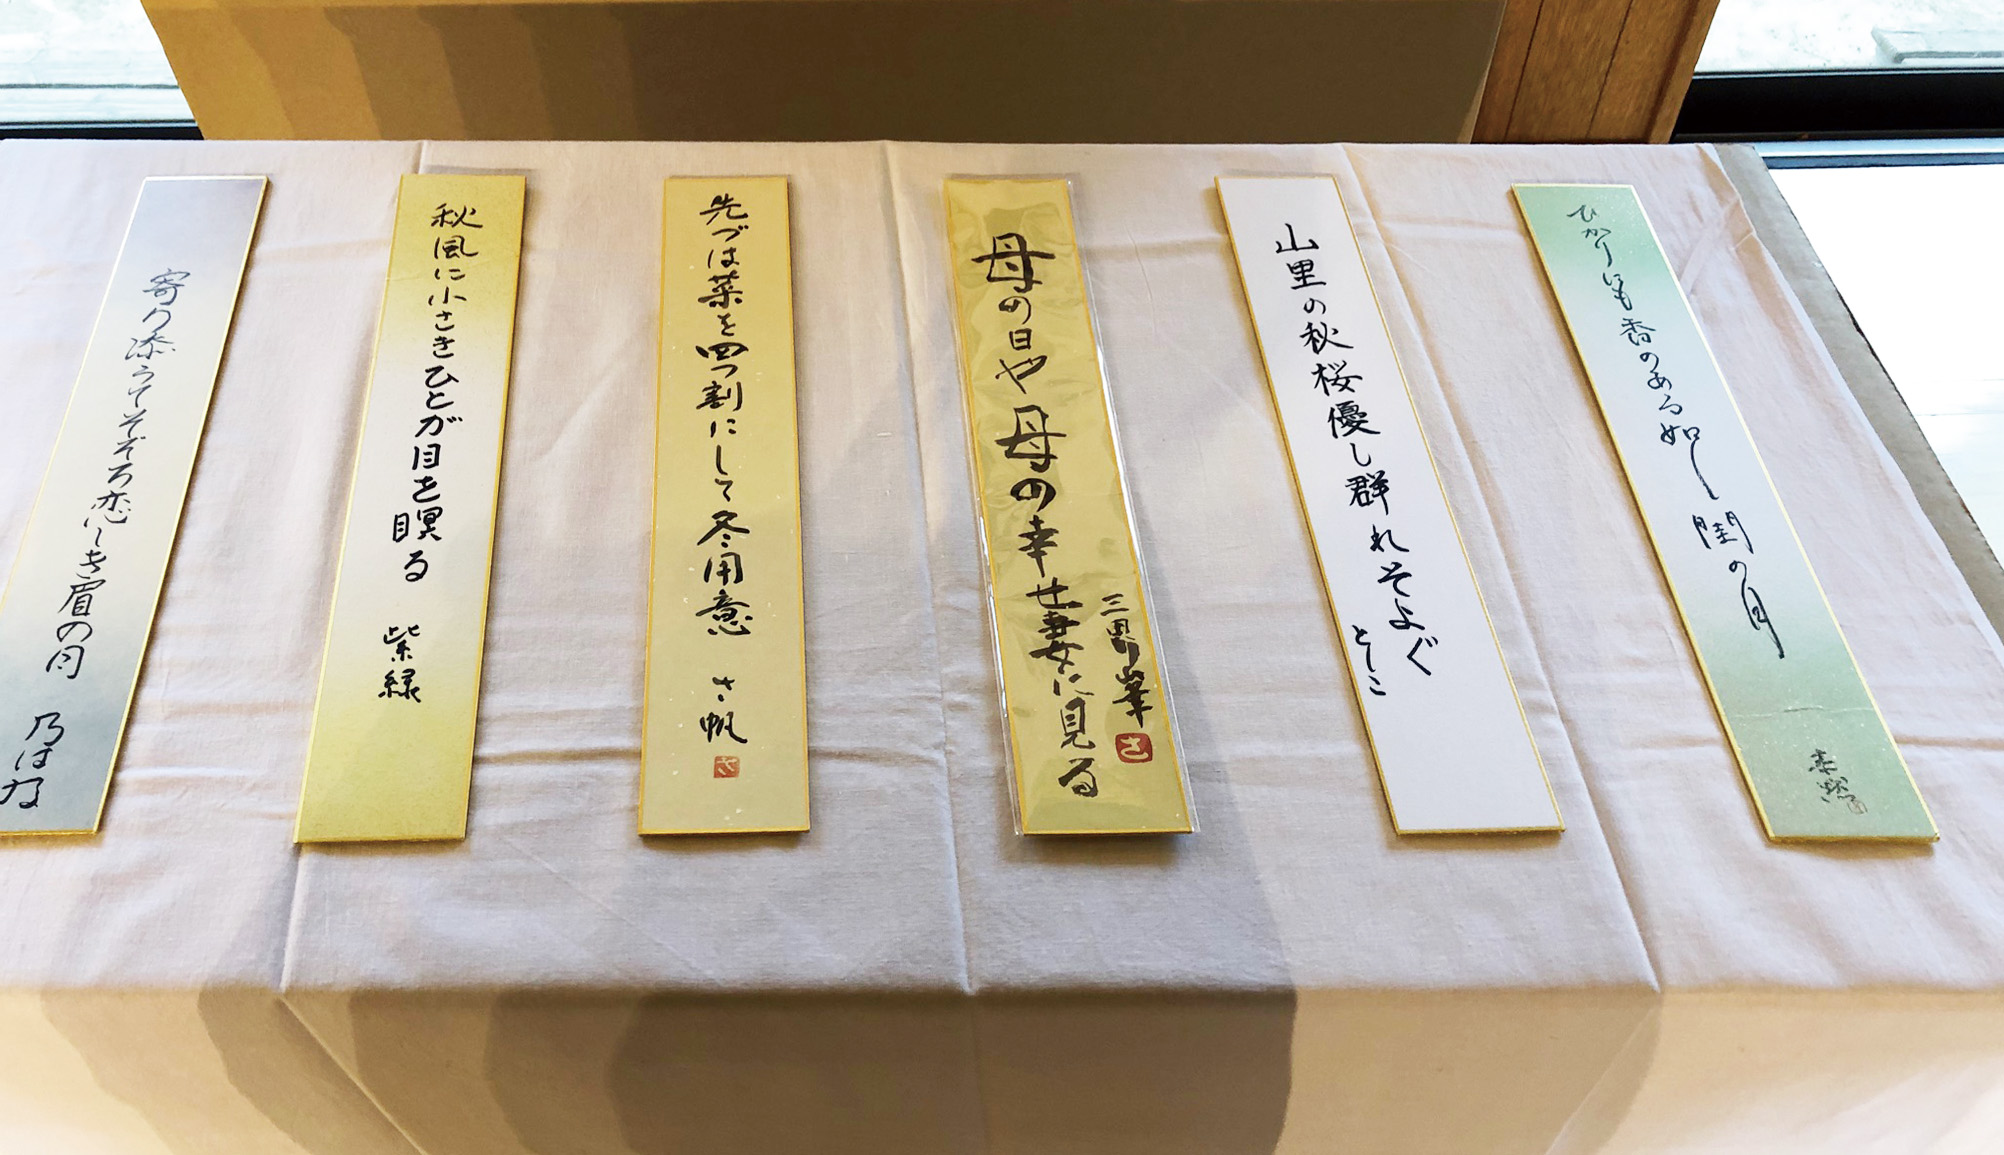 ひかりにも香のある如し閨の月
山里の秋桜優し群れそよぐ
としこ
母の日や母の幸せ妻に見る
さ
先づは菜を四つ割にして冬用意 さ帆
秋風に小さきひとが目を瞑る 紫緑
寄り添うてそぞろ恋しき眉の月